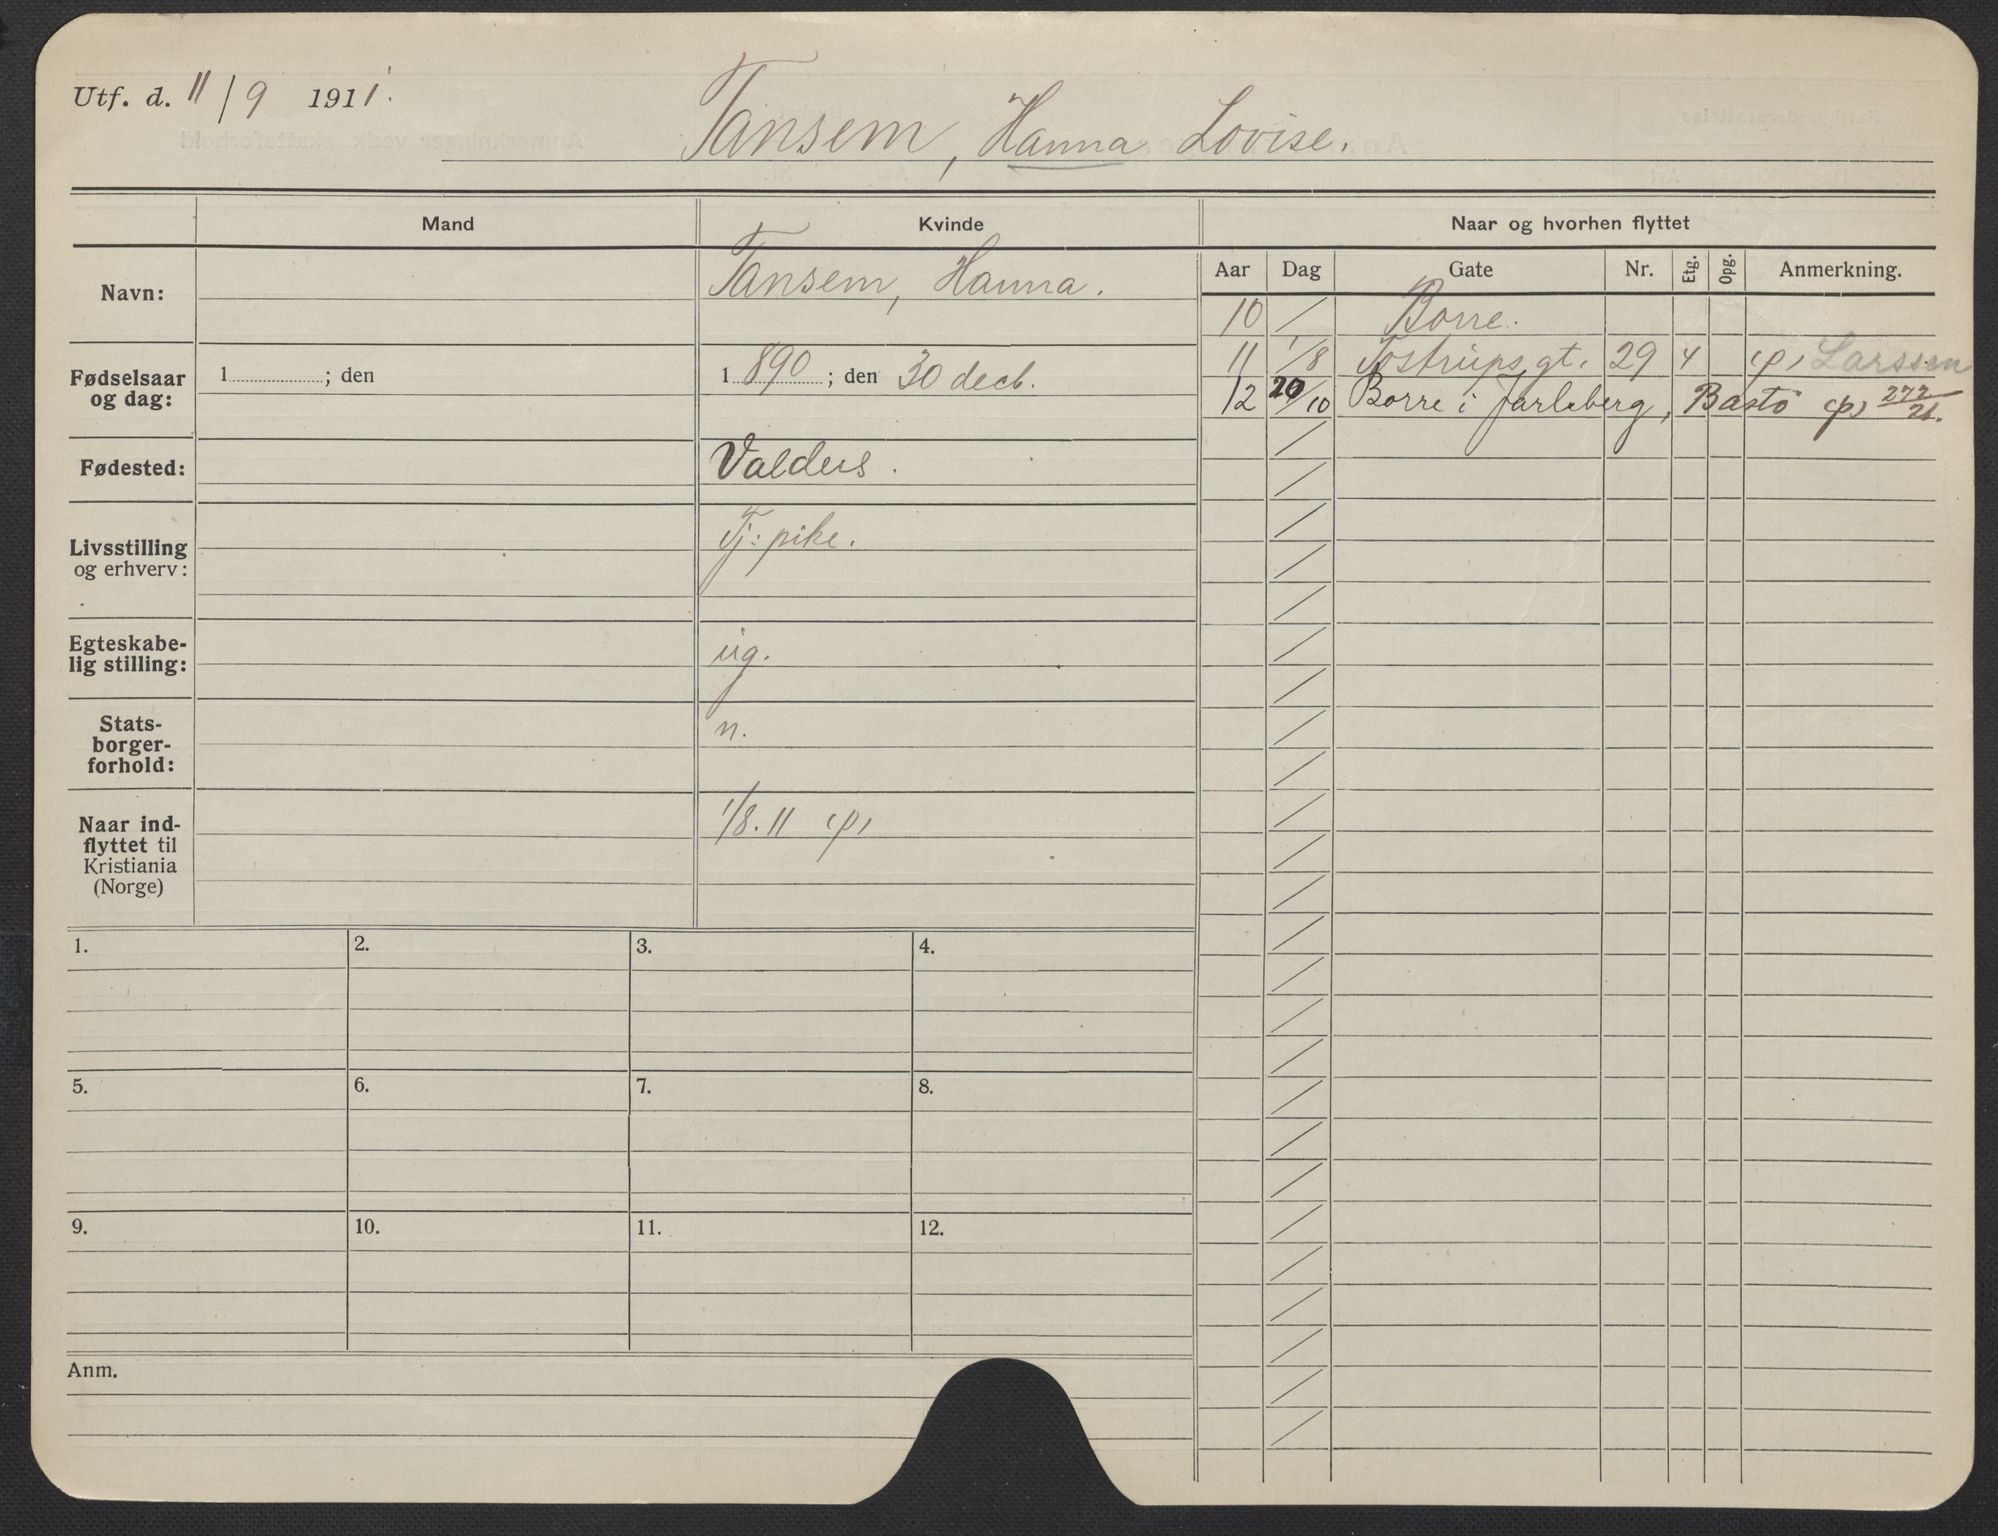 Utf. d. 11/9 1911.
Tansem, Hanna Lovise.
Mand
Kvinde
Naar og hvorhen flyttet
Aar Dag Gate Nr. Etg. Opg. Anmerkning.
Navn:
Tansem, Hanna.
Fødselsaar
og dag:
1 ; den
1 890 ; den 30 decb.
Fødested:
Valders.
Livsstilling
og erhverv:
Tj: pike.
Egteskabe-
lig stilling:
ug.
Stats-
borger-
forhold:
n.
Naar ind-
flyttet til
Kristiania
(Norge)
1/8. 11 (p)
10 / Borre.
11 1/8 Tostrupsgt. 29 4 (p) Larssen
12 20/10 Borre i Jarlsberg, Bastö (p) 272/21.
1. 2. 3. 4.
5. 6. 7. 8.
9. 10. 11. 12.
Anm.